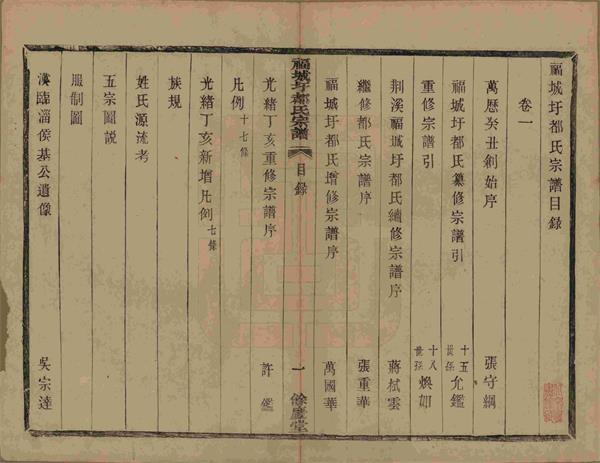 福城圩都氏宗譜目錄
卷一
萬厯癸丑創始序 張守綱
福城圩都氏纂修宗譜引 十五世孫允鑑
重修宗譜引 十八世孫煥如
荆溪福城圩都氏續修宗譜序 蔣栻雲
繼修都氏宗譜序 張重華
福城圩都氏增修宗譜序 萬國華
福城圩都氏宗譜 目錄 一 餘慶堂
光緒丁亥重修宗譜序 許鑑
凡例十七條
光緒丁亥新增凡例七條
族規
姓氏源流考
五宗圖說
服制圖
漢臨淄侯基公遺像 吳宗達